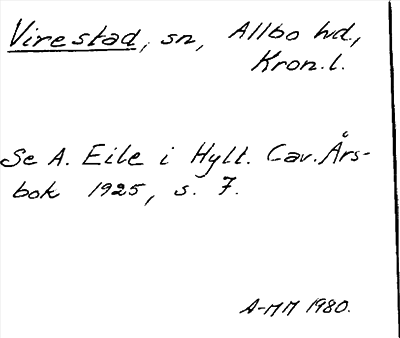 Virestad, sn, Allbo hd.,
Kron.l.
Se A. Eile i Hylt. Cav. Års-
bok 1925, s. 7.
A-MM 1980.